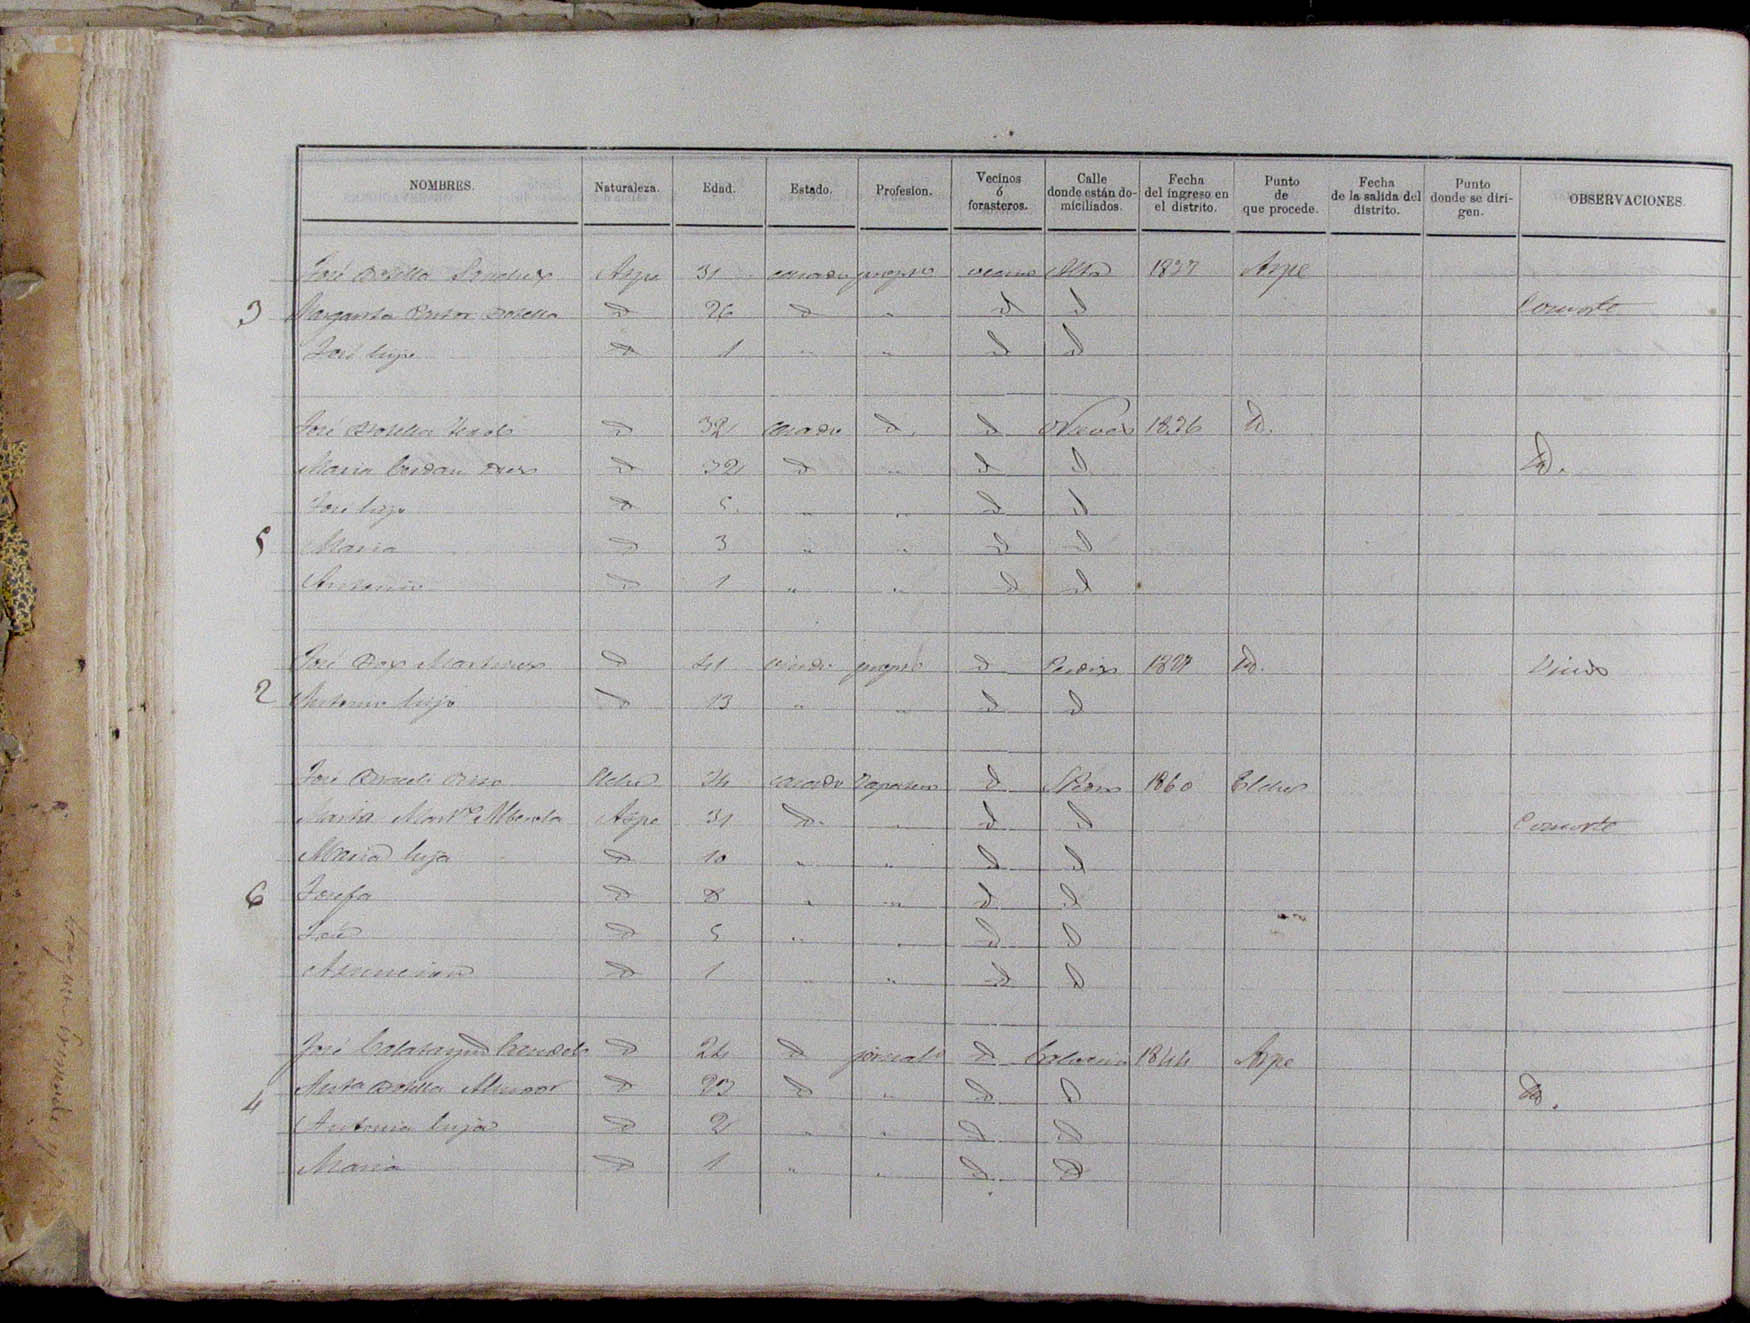 NOMBRES. Naturaleza. Edad. Estado. Profesion. Vecinos ó forasteros. Calle donde están domiciliados. Fecha del ingreso en el distrito. Punto de que procede. Fecha de la salida del distrito. Punto donde se dirigen. OBSERVACIONES.
José Botella Sanchez Aspe 31 casado vecino Alta 1837 Aspe
3 Margarita Pastor Botella d 26 d " d d Consorte
José hijo d 1 " " d d
José Botella d 32 casado d. d Nueva 1836 Id.
Maria Cerdan d 32 d " d d Id.
José hijo d 5 " " d d
5 Maria d 3 " " d d
Antonio d 1 " " d d
José Martinez d 41 viudo d 1827 Id. Viudo
2 Antonio hijo d 13 " " d d
José Elche 34 casado Zapatero d 1860 Elche
Maria Mart.z Alberola Aspe 31 d. " d d Consorte
Maria hija d 10 " " d d
6 Josefa d 8 " " d d
José d 5 " " d d
Asuncion d 1 " " d d
José Calatayud d 24 d jornal.o d Calvario 1844 Aspe
4 Botella d 23 d " d d Id.
Antonia hija d 2 " " d d
Maria d 1 " " d d